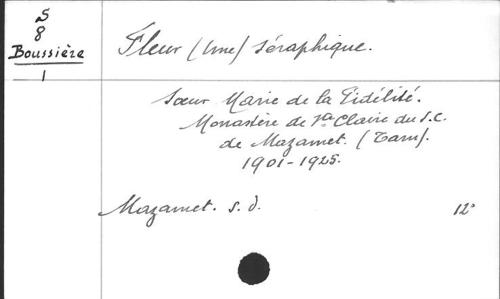 S
8
Boussière
1
Fleur (Une) séraphique.
Sœur Marie de la Fidélité.
Monastère de Ste Claire du S.C.
de Mazamet. (Tarn).
1901-1925.
Mazamet. s. d.
12°